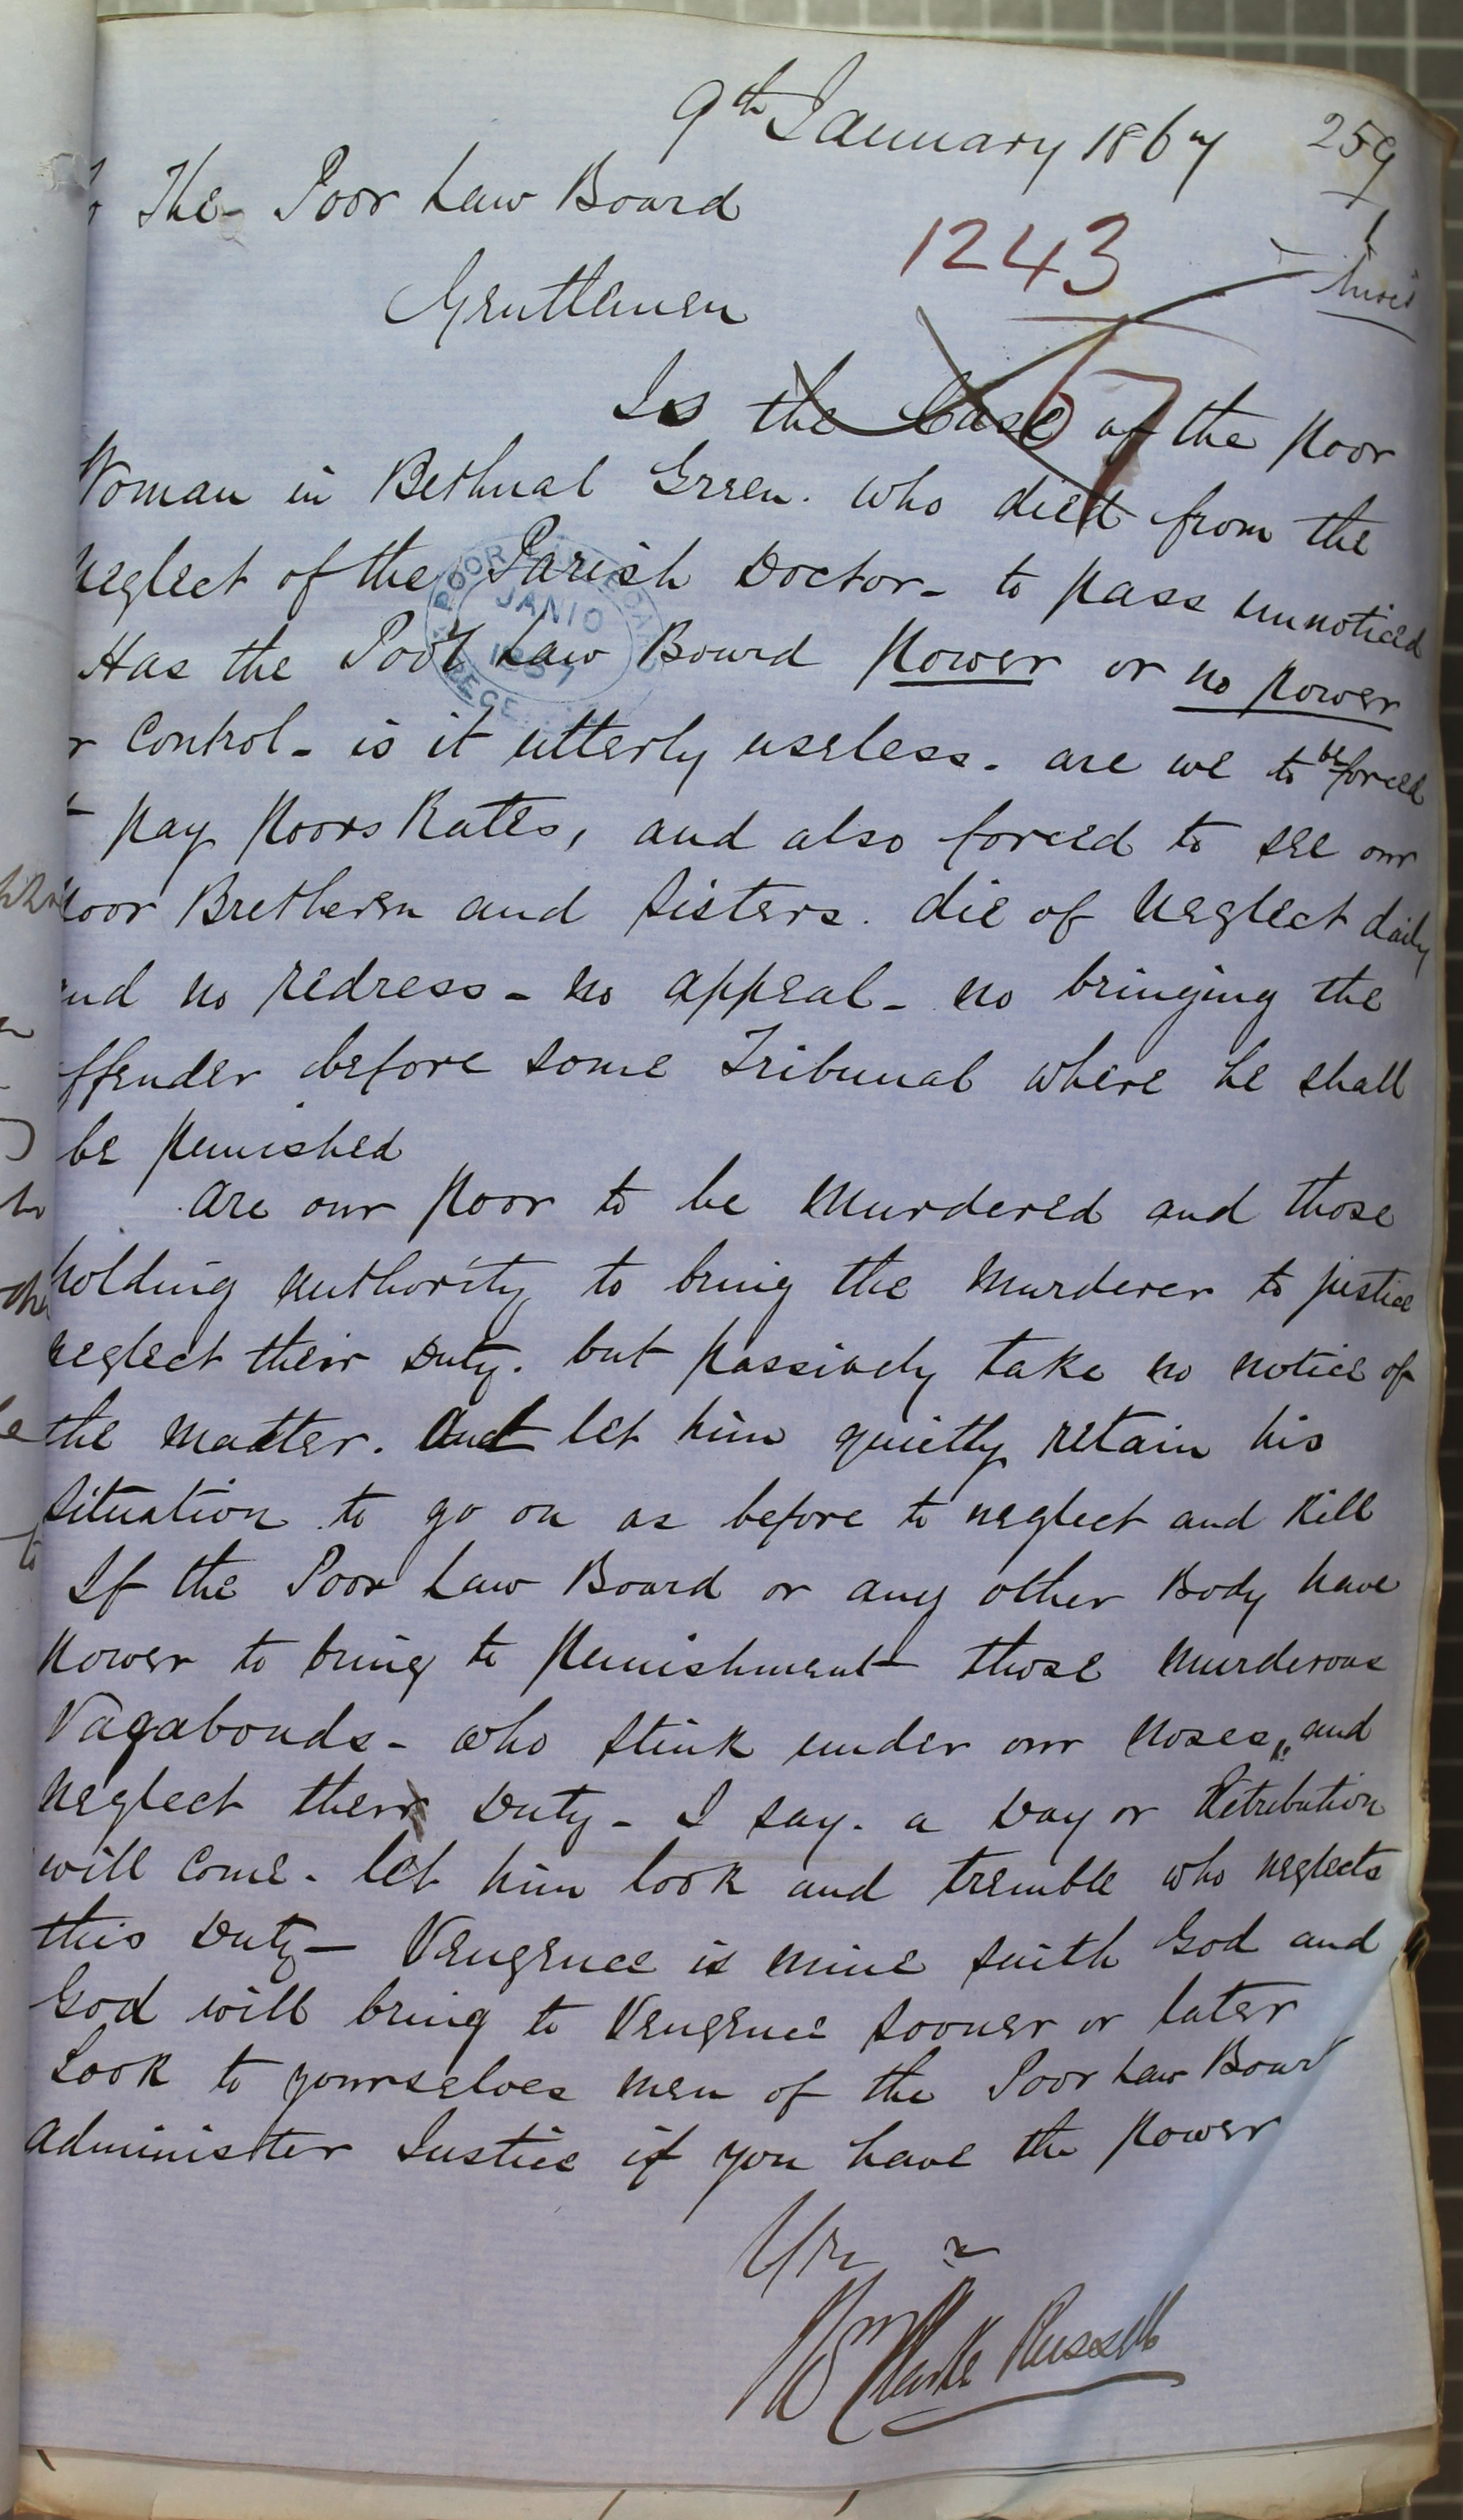 9th January 1867
259
The Poor Law Board
1243
67
Gentlemen
Is the Case of the poor
Woman in Bethnal Green. who died from the
neglect of the Parish Doctor - to pass unnoticed
Has the Poor Law Board power or no power
r Control - is it utterly useless. are we to be forced
pay poors Rates, and also forced to see our
poor Bretheren and Sisters. die of neglect daily
and no redress - no appeal - no bringing the
offender before some Tribunal where he shall
be punished
are our poor to be murdered and those
holding authority to bring the murderer to justice
neglect their Duty. but passively take no notice of
the matter. and let him quietly retain his
situation to go on as before to neglect and Kill
If the Poor Law Board or any other Body have
power to bring to punishment those murderous
Vagabonds - who stink under our noses, and
neglect their Duty - I say. a Day or Retribution
will come. let him look and tremble who neglects
this Duty - Vengence is mine saith God and
God will bring to Vengence sooner or later
Look to yourselves men of the Poor Law Board
administer Justice if you have the power
Yrs
Wm Clarke Russell
POOR
JAN 10
1867